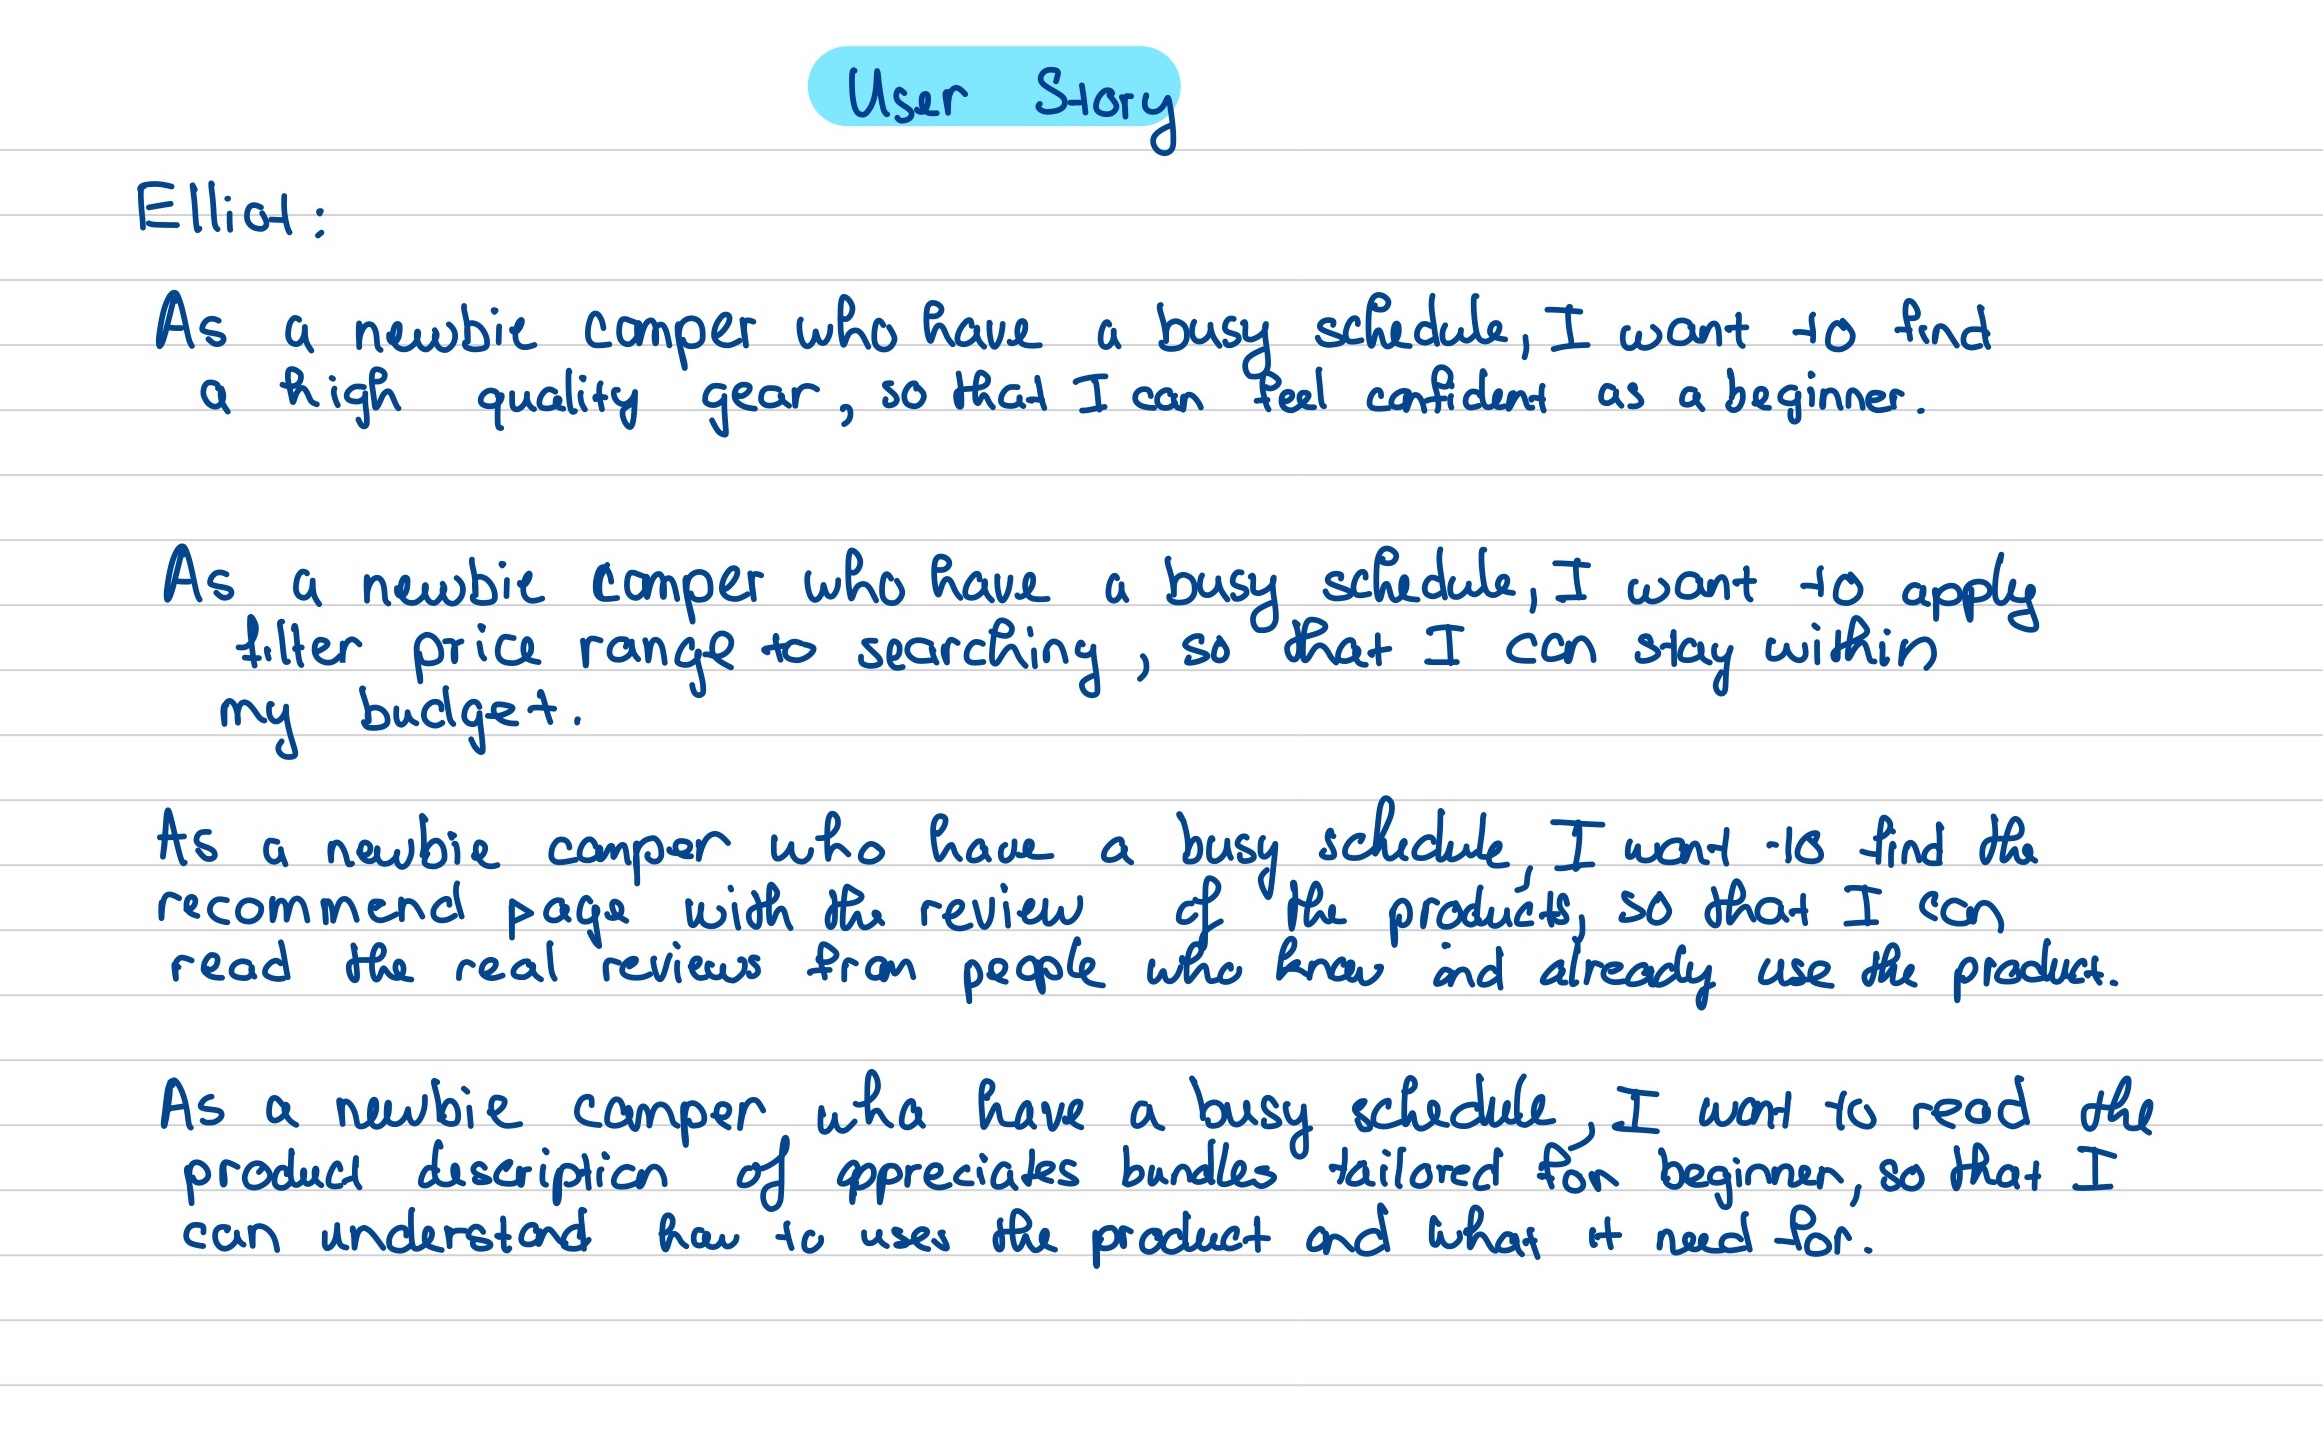 User Story
Elliot:
As a newbie camper who have a busy schedule, I want to find
a high quality gear, so that I can feel confident as a beginner.
As a newbie camper who have a busy schedule, I want to apply
filter price range to searching, so that I can stay within
my budget.
As a newbie camper who have a busy schedule, I want to find the
recommend page with the review of the products, so that I can
read the real reviews from people who know and already use the product.
As a newbie camper who have a busy schedule, I want to read the
product description of appreciates bundles tailored for beginner, so that I
can understand how to uses the product and what it need for.